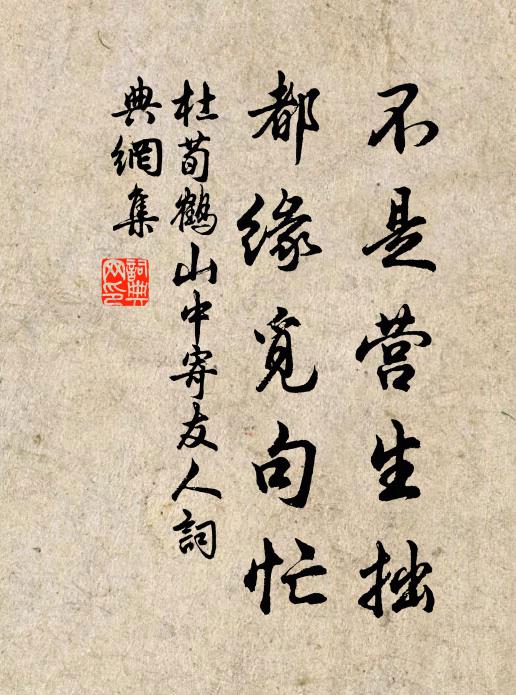 不是营生拙
都缘觅句忙
杜荀鹤山中寄友人词
典網集
詞典
网印